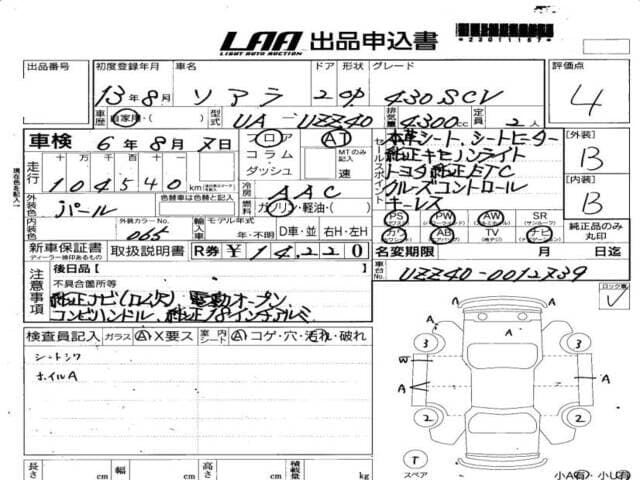 LAA 出品申込書
LIGHT AUTO AUCTION
*22011187*
出品番号 初度登録年月 車名 ドア 形状 グレード 評価点
13年8月 ソアラ 2 OP 430SCV 4
車歴 自家用・( ) 型式 UA-UZZ40 排気量 4300cc 定員 2人
車検 6年8月 日 フロア AT
コラム・ダッシュ MTのみ記入 速
走行 十万千百十 104540km
冷房 AAC
燃料 ガソリン・軽油・( )
外装色 パール 色替車は色替と記入
内装色 外装カラーNo. 065 輸入車 モデル年式 年・不明 D車・並 右H・左H
セールスポイント
本革シート、シートヒーター
純正キセノンライト
トヨタ純正ETC
クルーズコントロール
キーレス
【外装】 B
【内装】 B
PS PW AW SR
カワ AB TV ナビ
純正品のみ丸印
新車保証書 取扱説明書 R券 ¥14,220
ディーラー捺印あるもの
名変期限 月 日迄
車台No. UZZ40-0012739
注意事項
後日品【 】
不具合箇所等
純正ナビ(ロム欠)電動オープン
コンビハンドル、純正18インチアルミ
ロック車
検査員記入 ガラス A X要ス 室内シート A コゲ・穴・汚れ・破れ
シートシワ
ホイルA
A A
3 3
W A
A A
2 2
T
スペア
長さ cm 幅 cm 高さ cm 積載量 kg 小A有・小U有